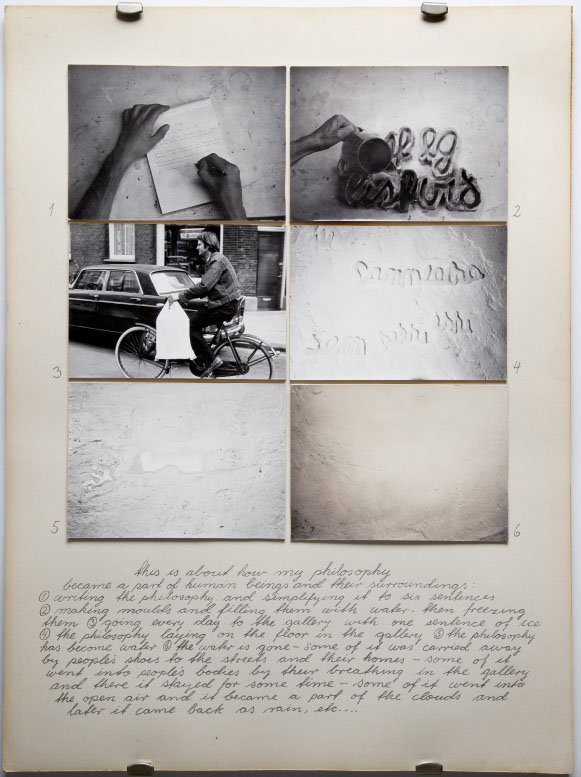 1
2
3
4
5
6
this is about how my philosophy
became a part of human beings and their surroundings:
① writing the philosophy and simplifying it to six sentences
② making moulds and filling them with water-then freezing
them ③ going every day to the gallery with one sentence of ice
④ the philosophy laying on the floor in the gallery ⑤ the philosophy
has become water ⑥ the water is gone – some of it was carried away
by people's shoes to the streets and their homes – some of it
went into people's bodies by their breathing in the gallery
and there it stayed for some time – some of it went into
the open air and it became a part of the clouds and
later it came back as rain, etc....